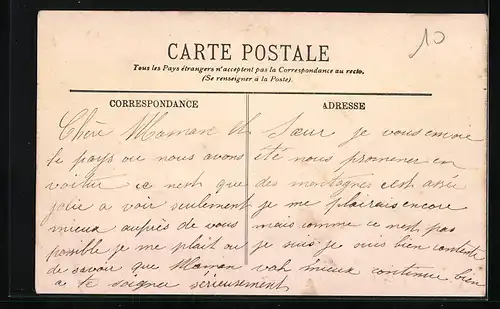 10
CARTE POSTALE
Tous les Pays étrangers n'acceptent pas la Correspondance au recto.
(Se renseigner à la Poste).
CORRESPONDANCE
ADRESSE
Chère Maman et Sœur je vous envoie
le pays ou nous avons été nous promener en
voitur ce nest que des montagnes c'est assée
jolie a voir seulement je me plairais encore
mieux auprès de vous mais comme ce nest pas
possible je me plait ou je suis je suis bien contente
de savoir que Maman vah mieux continue bien
a te soigner sérieusement